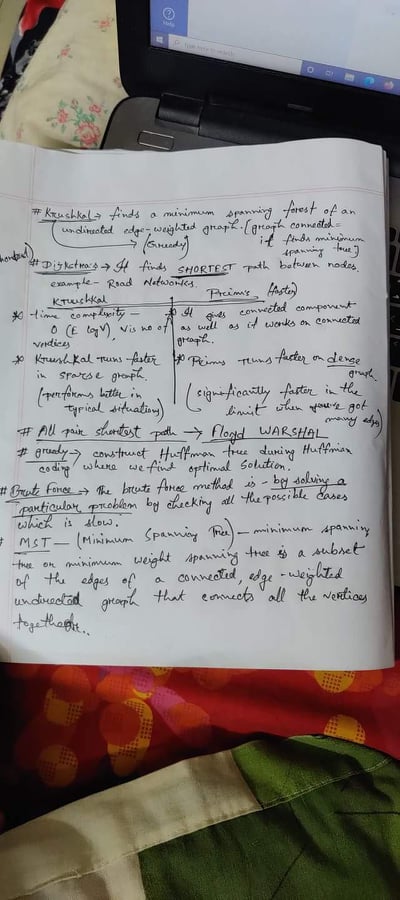 Help
Type here to search
# Krushkal → finds a minimum spanning forest of an
undirected edge-weighted graph. [graph connected=
(Greedy)
it finds minimum
spanning tree]
# Dijkstra's → It finds SHORTEST path between nodes.
example - Road Networks.
Krushkal
Preims (faster)
* time complexity -
O (E log V), V is no of
vertices
* Krushkal runs faster
in sparse graph.
(performs better in
typical situations)
* It gives connected component
as well as it works on connected
graph.
* Preims runs faster on dense
graph.
(significantly faster in the
limit when you've got
many edges)
# All pair shortest path → Floyd WARSHAL
# greedy → construct Huffman tree during Huffman
coding where we find optimal solution.
# Brute Force → the brute force method is - by solving a
particular problem by checking all the possible cases
which is slow.
MST - (Minimum Spanning Tree) - minimum spanning
tree or minimum weight spanning tree is a subset
of the edges of a connected, edge-weighted
undirected graph that connects all the vertices
together..